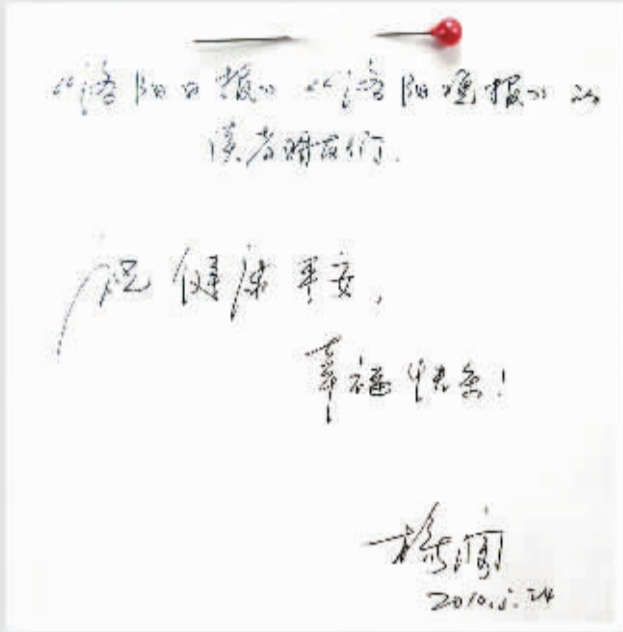 《洛阳日报》《洛阳晚报》的
读者朋友们.
祝健康平安,
幸福快乐!
杨澜
2010.5.24